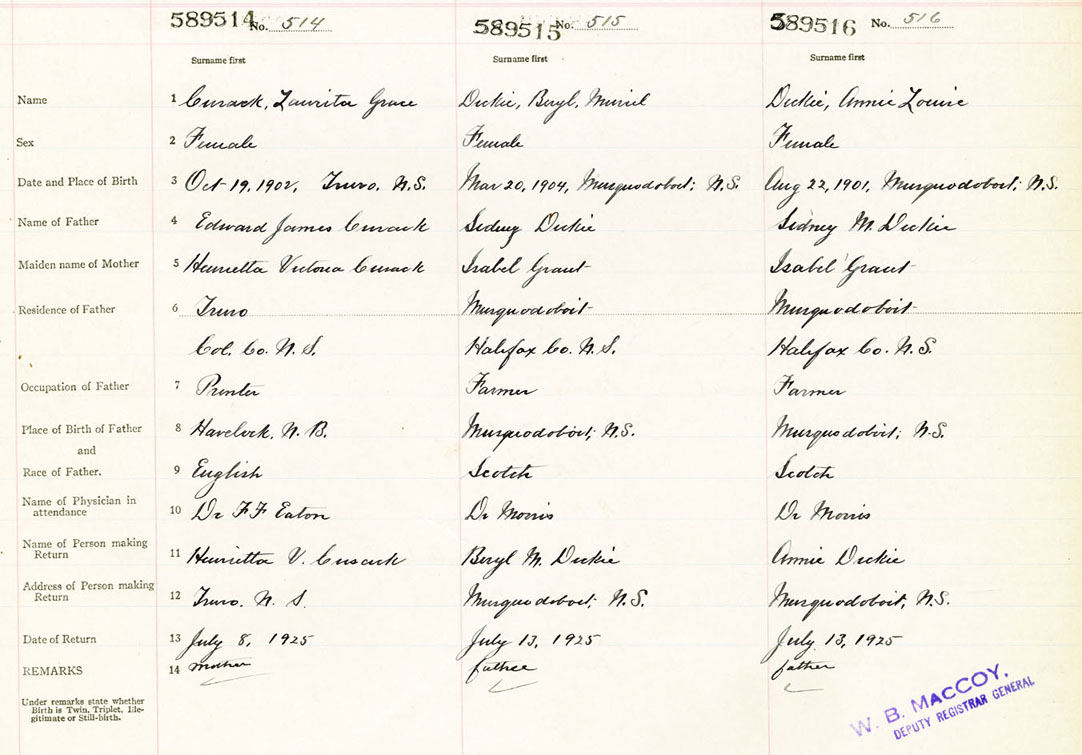 589514 No. 514 589515 No. 515 589516 No. 516
Surname first Surname first Surname first
Name 1 Cusack, Laurita Grace Dickie, Beryl, Muriel Dickie, Annie Louise
Sex 2 Female Female Female
Date and Place of Birth 3 Oct 19, 1902, Truro, N.S. Mar 20, 1904, Musquodoboit; N.S. Aug 22, 1901, Musquodoboit; N.S.
Name of Father 4 Edward James Cusack Sidney Dickie Sidney M. Dickie
Maiden name of Mother 5 Henrietta Victoria Cusack Isabel Grant Isabel Grant
Residence of Father 6 Truro Musquodoboit Musquodoboit
Col. Co. N. S. Halifax Co. N. S. Halifax Co. N. S.
Occupation of Father 7 Printer Farmer Farmer
Place of Birth of Father 8 Havelock, N. B. Musquodoboit; N.S. Musquodoboit; N.S.
and
Race of Father. 9 English Scotch Scotch
Name of Physician in
attendance 10 Dr F F Eaton Dr Morris Dr Morris
Name of Person making
Return 11 Henrietta V. Cusack Beryl M. Dickie Annie Dickie
Address of Person making
Return 12 Truro. N. S. Musquodoboit; N.S. Musquodoboit, N.S.
Date of Return 13 July 8, 1925 July 13, 1925 July 13, 1925
REMARKS 14 mother father father
Under remarks state whether
Birth is Twin, Triplet, Ille-
gitimate or Still-birth.
W. B. MACCOY,
DEPUTY REGISTRAR GENERAL